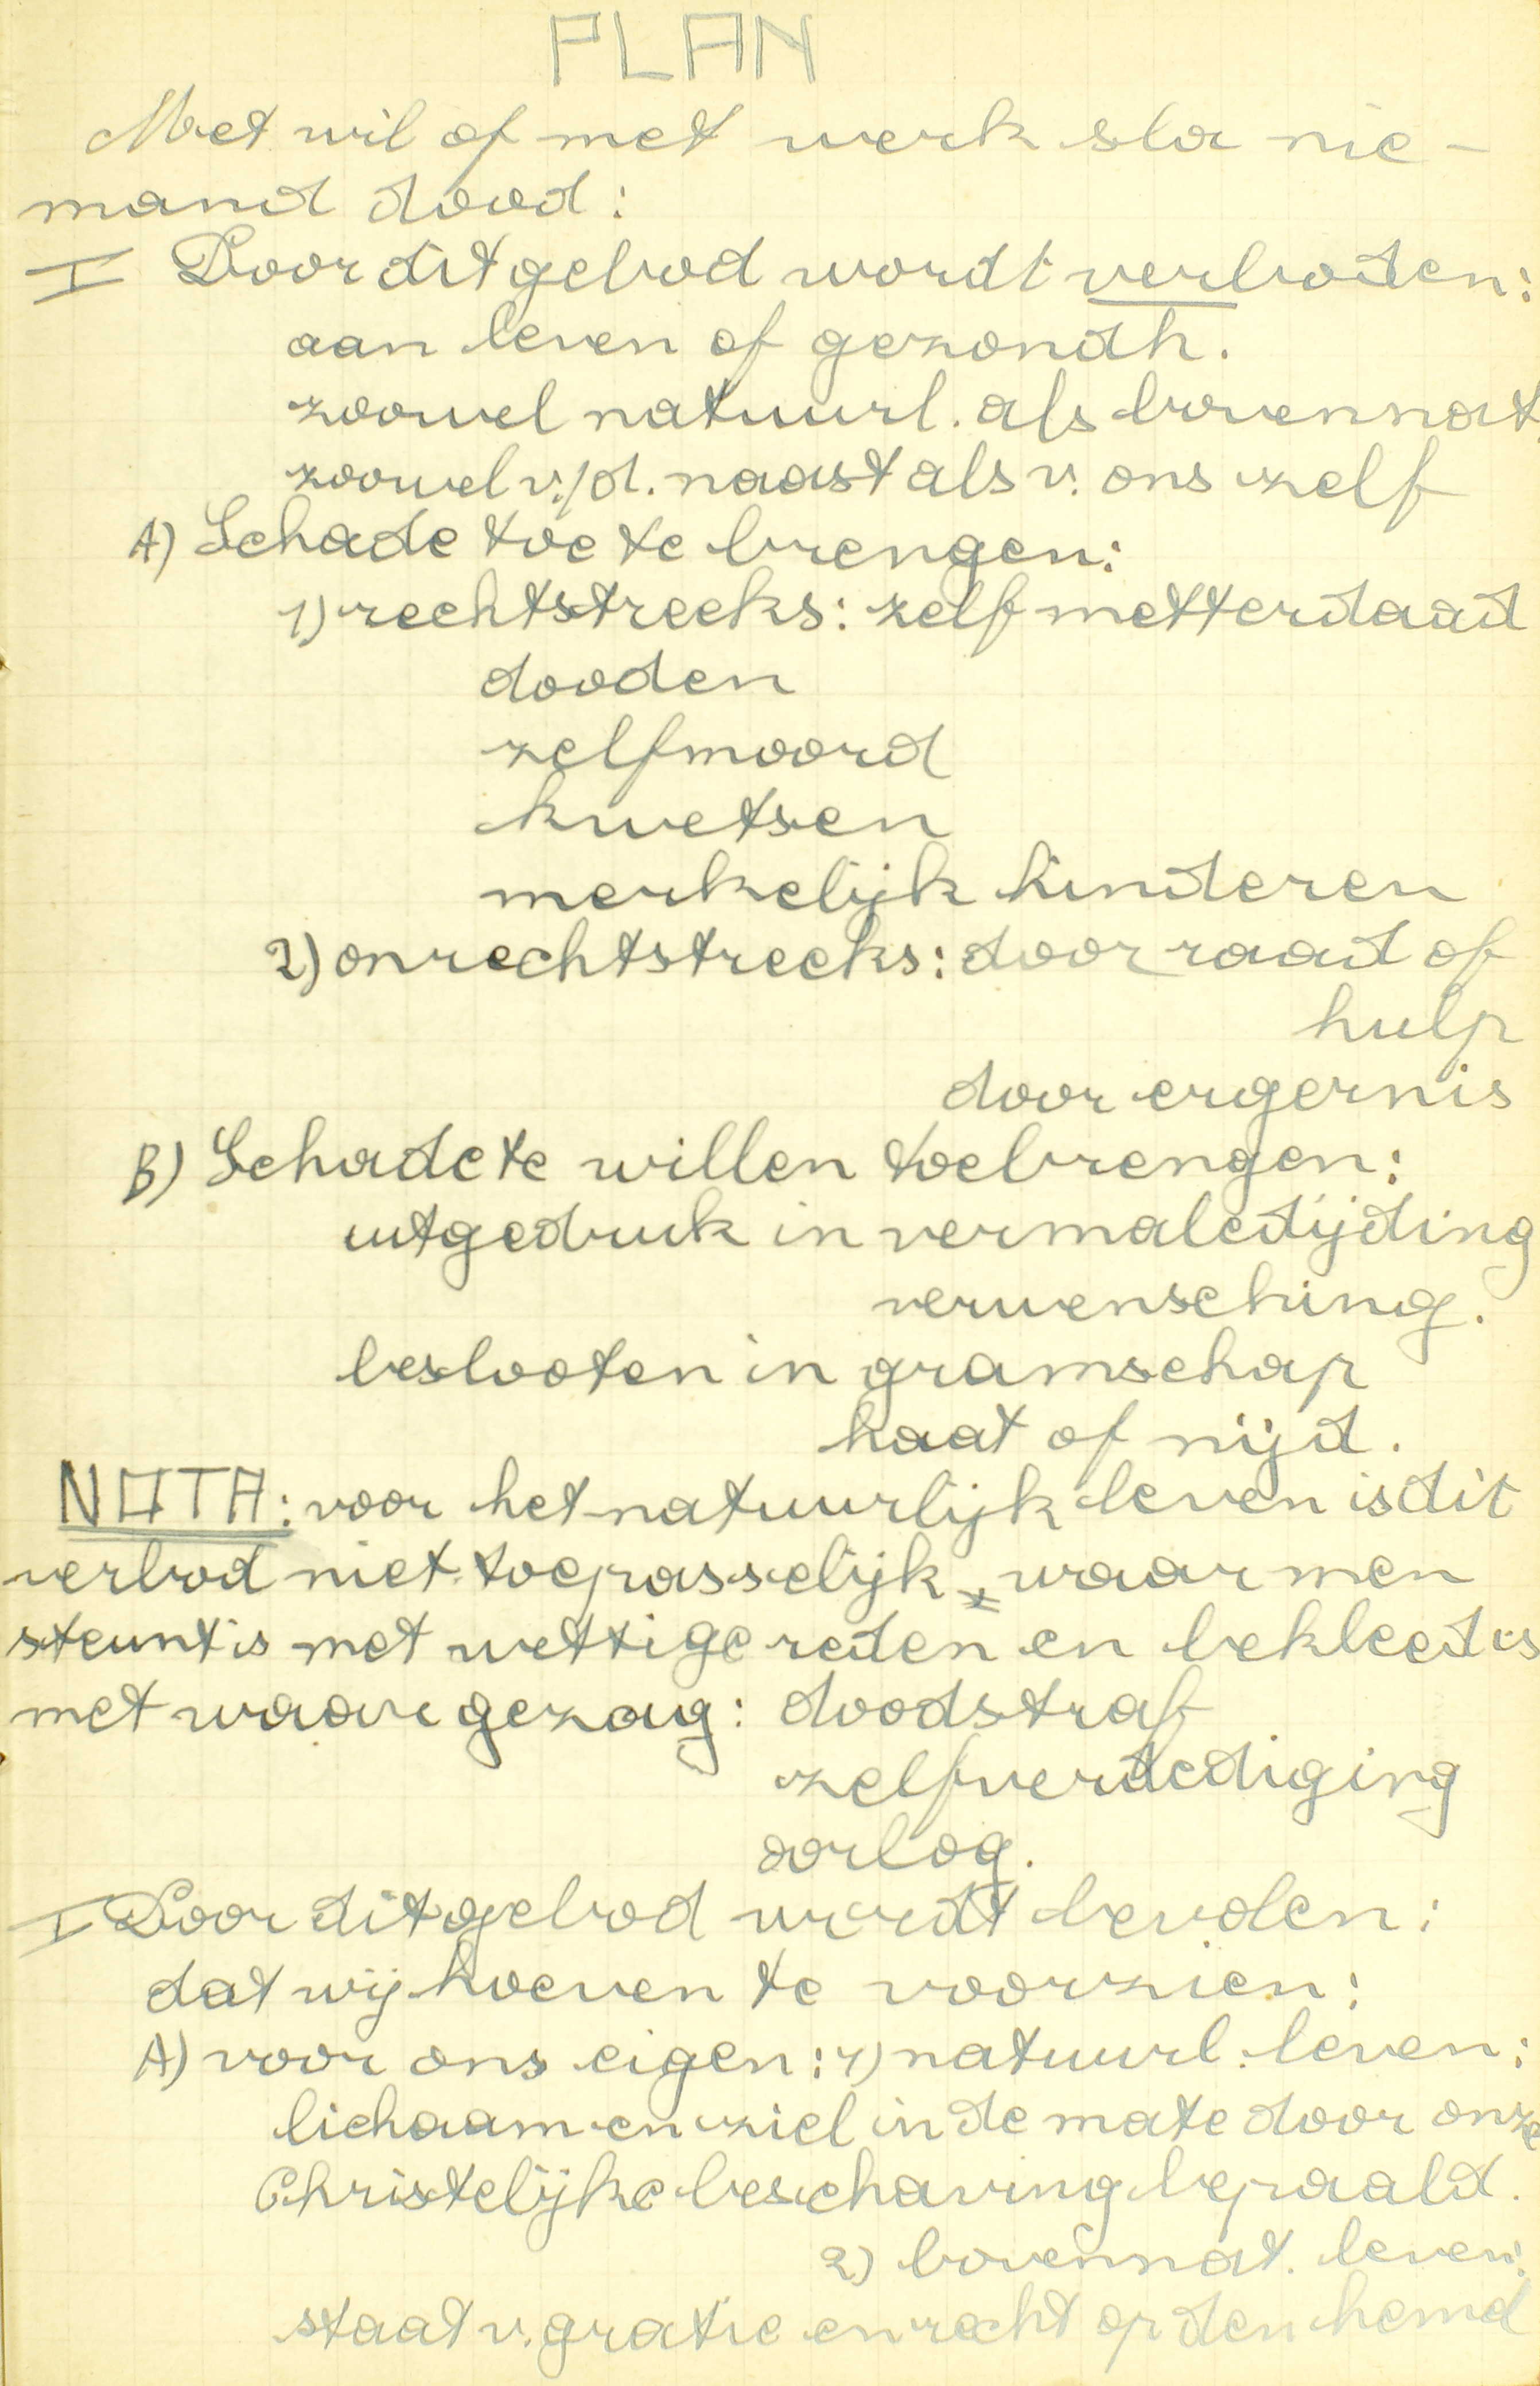 PLAN
Met wil of met werk sla nie-
mand dood:
I Door dit gebod wordt verboden:
aan leven of gezondh.
zoowel natuurl. als bovennat.
zoowel v./d. naast als v. ons zelf
A) Schade toe te brengen:
1) rechtstreeks: zelf metterdaad
dooden
zelfmoord
kwetsen
merkelijk hinderen
2) onrechtstreeks: door raad of
hulp
door ergernis
B) Schade te willen toebrengen:
uitgedruk in vermaledijding
verwensching.
beslooten in gramschap
haat of nijd.
NOTA: voor het natuurlijk leven is dit
verbod niet toepasselijk waar men
steunt is met wettige reden en bekleed is
met waare gezag: doodstraf
zelfverdediging
oorlog.
I Door dit gebod wordt bevolen:
dat wij hoeven te voorzien:
A) voor ons eigen: 1) natuurl. leven:
lichaam en ziel in de mate door onze
Christelijke beschaving bepaald.
2) bovennat. leven:
staat v. gratie en recht op den hemel